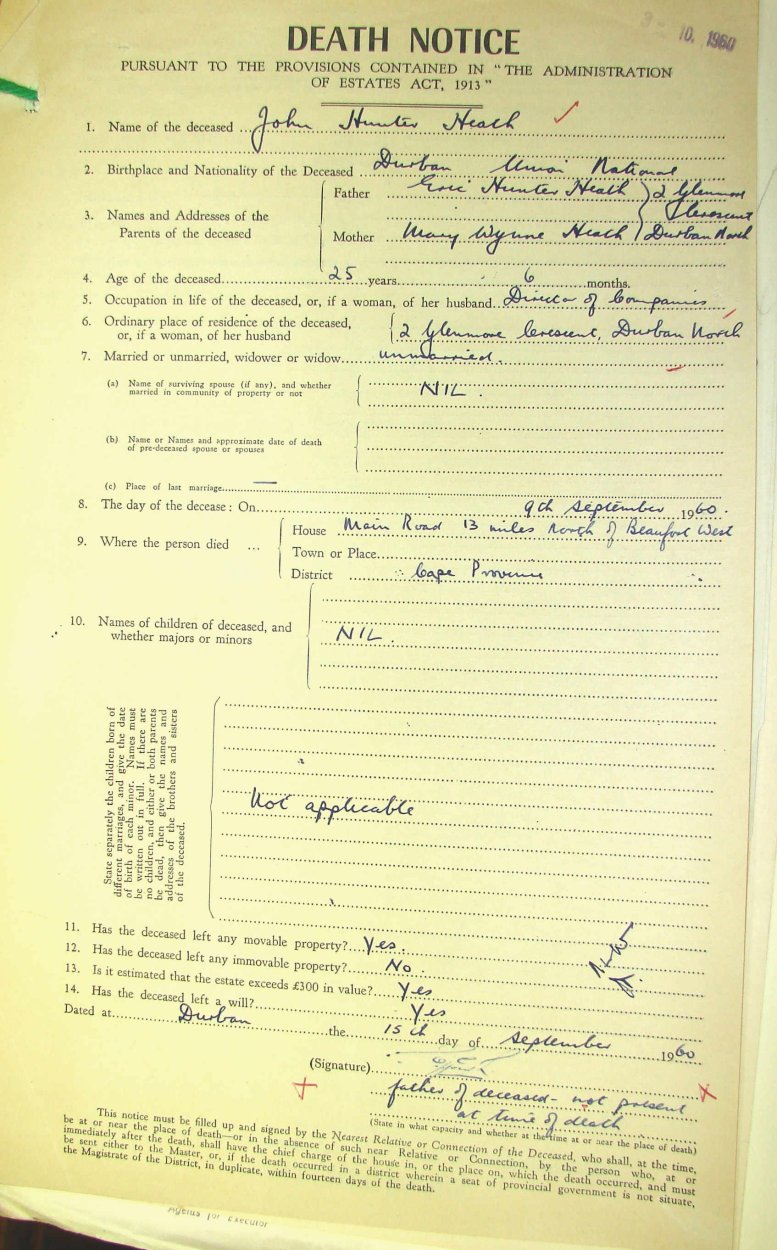 10. 1960
DEATH NOTICE
PURSUANT TO THE PROVISIONS CONTAINED IN "THE ADMINISTRATION
OF ESTATES ACT, 1913"
1. Name of the deceased ... John Hunter Heath
2. Birthplace and Nationality of the Deceased Durban Union National
3. Names and Addresses of the
Parents of the deceased
Father Eric Hunter Heath
Mother Mary Wynne Heath
2 Glenmore
Crescent
Durban North
4. Age of the deceased 25 years 6 months.
5. Occupation in life of the deceased, or, if a woman, of her husband Director of Companies
6. Ordinary place of residence of the deceased,
or, if a woman, of her husband
2 Glenmore Crescent, Durban North
7. Married or unmarried, widower or widow unmarried.
(a) Name of surviving spouse (if any), and whether
married in community of property or not
NIL.
(b) Name or Names and approximate date of death
of pre-deceased spouse or spouses
(c) Place of last marriage —
8. The day of the decease: On 9th September 1960.
9. Where the person died ...
House Main Road 13 miles North of Beaufort West
Town or Place
District Cape Province
10. Names of children of deceased, and
whether majors or minors
NIL.
State separately the children born of
different marriages, and give the date
of birth of each minor. Names must
be written out in full. If there are
no children, and either or both parents
be dead, then give the names and
addresses of the brothers and sisters
of the deceased.
Not applicable
11. Has the deceased left any movable property? Yes.
12. Has the deceased left any immovable property? No.
13. Is it estimated that the estate exceeds £300 in value? Yes
14. Has the deceased left a will? Yes
Dated at Durban the 15th day of September 1960
(Signature)
father of deceased - not present
at time of death
(State in what capacity and whether at the time at or near the place of death)
This notice must be filled up and signed by the Nearest Relative or Connection of the Deceased, who shall, at the time,
be at or near the place of death—or in the absence of such near Relative or Connection, by the person who, at or
immediately after the death, shall have the chief charge of the house in, or the place on, which the death occurred, and must
be sent either to the Master, or, if the death occurred in a district wherein a seat of provincial government is not situate,
the Magistrate of the District, in duplicate, within fourteen days of the death.
for Executor